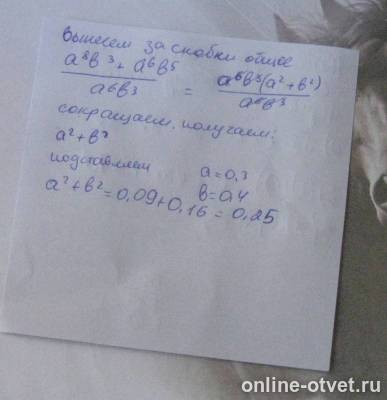 Вынесем за скобки общее
a⁸b³ + a⁶b⁵ / a⁶b³ = a⁶b³(a² + b²) / a⁶b³
сокращаем, получаем:
a² + b²
подставляем a = 0,3
b = 0,4
a² + b² = 0,09 + 0,16 = 0,25
online-otvet.ru